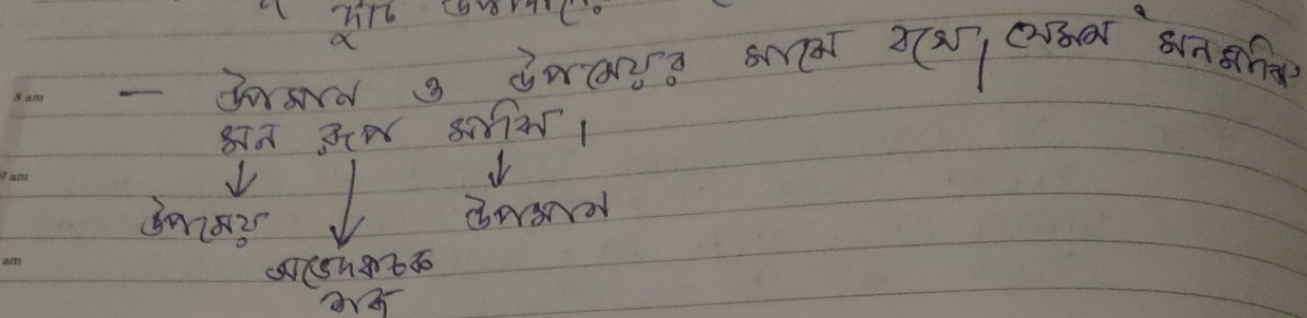 8 am
— উপমান ও উপমেয়র মাঝে বসে, যেমন মনমাঝি
মন রূপ মাঝি।
9 am
উপমেয় উপমান
am
অভেদবাচক
শব্দ